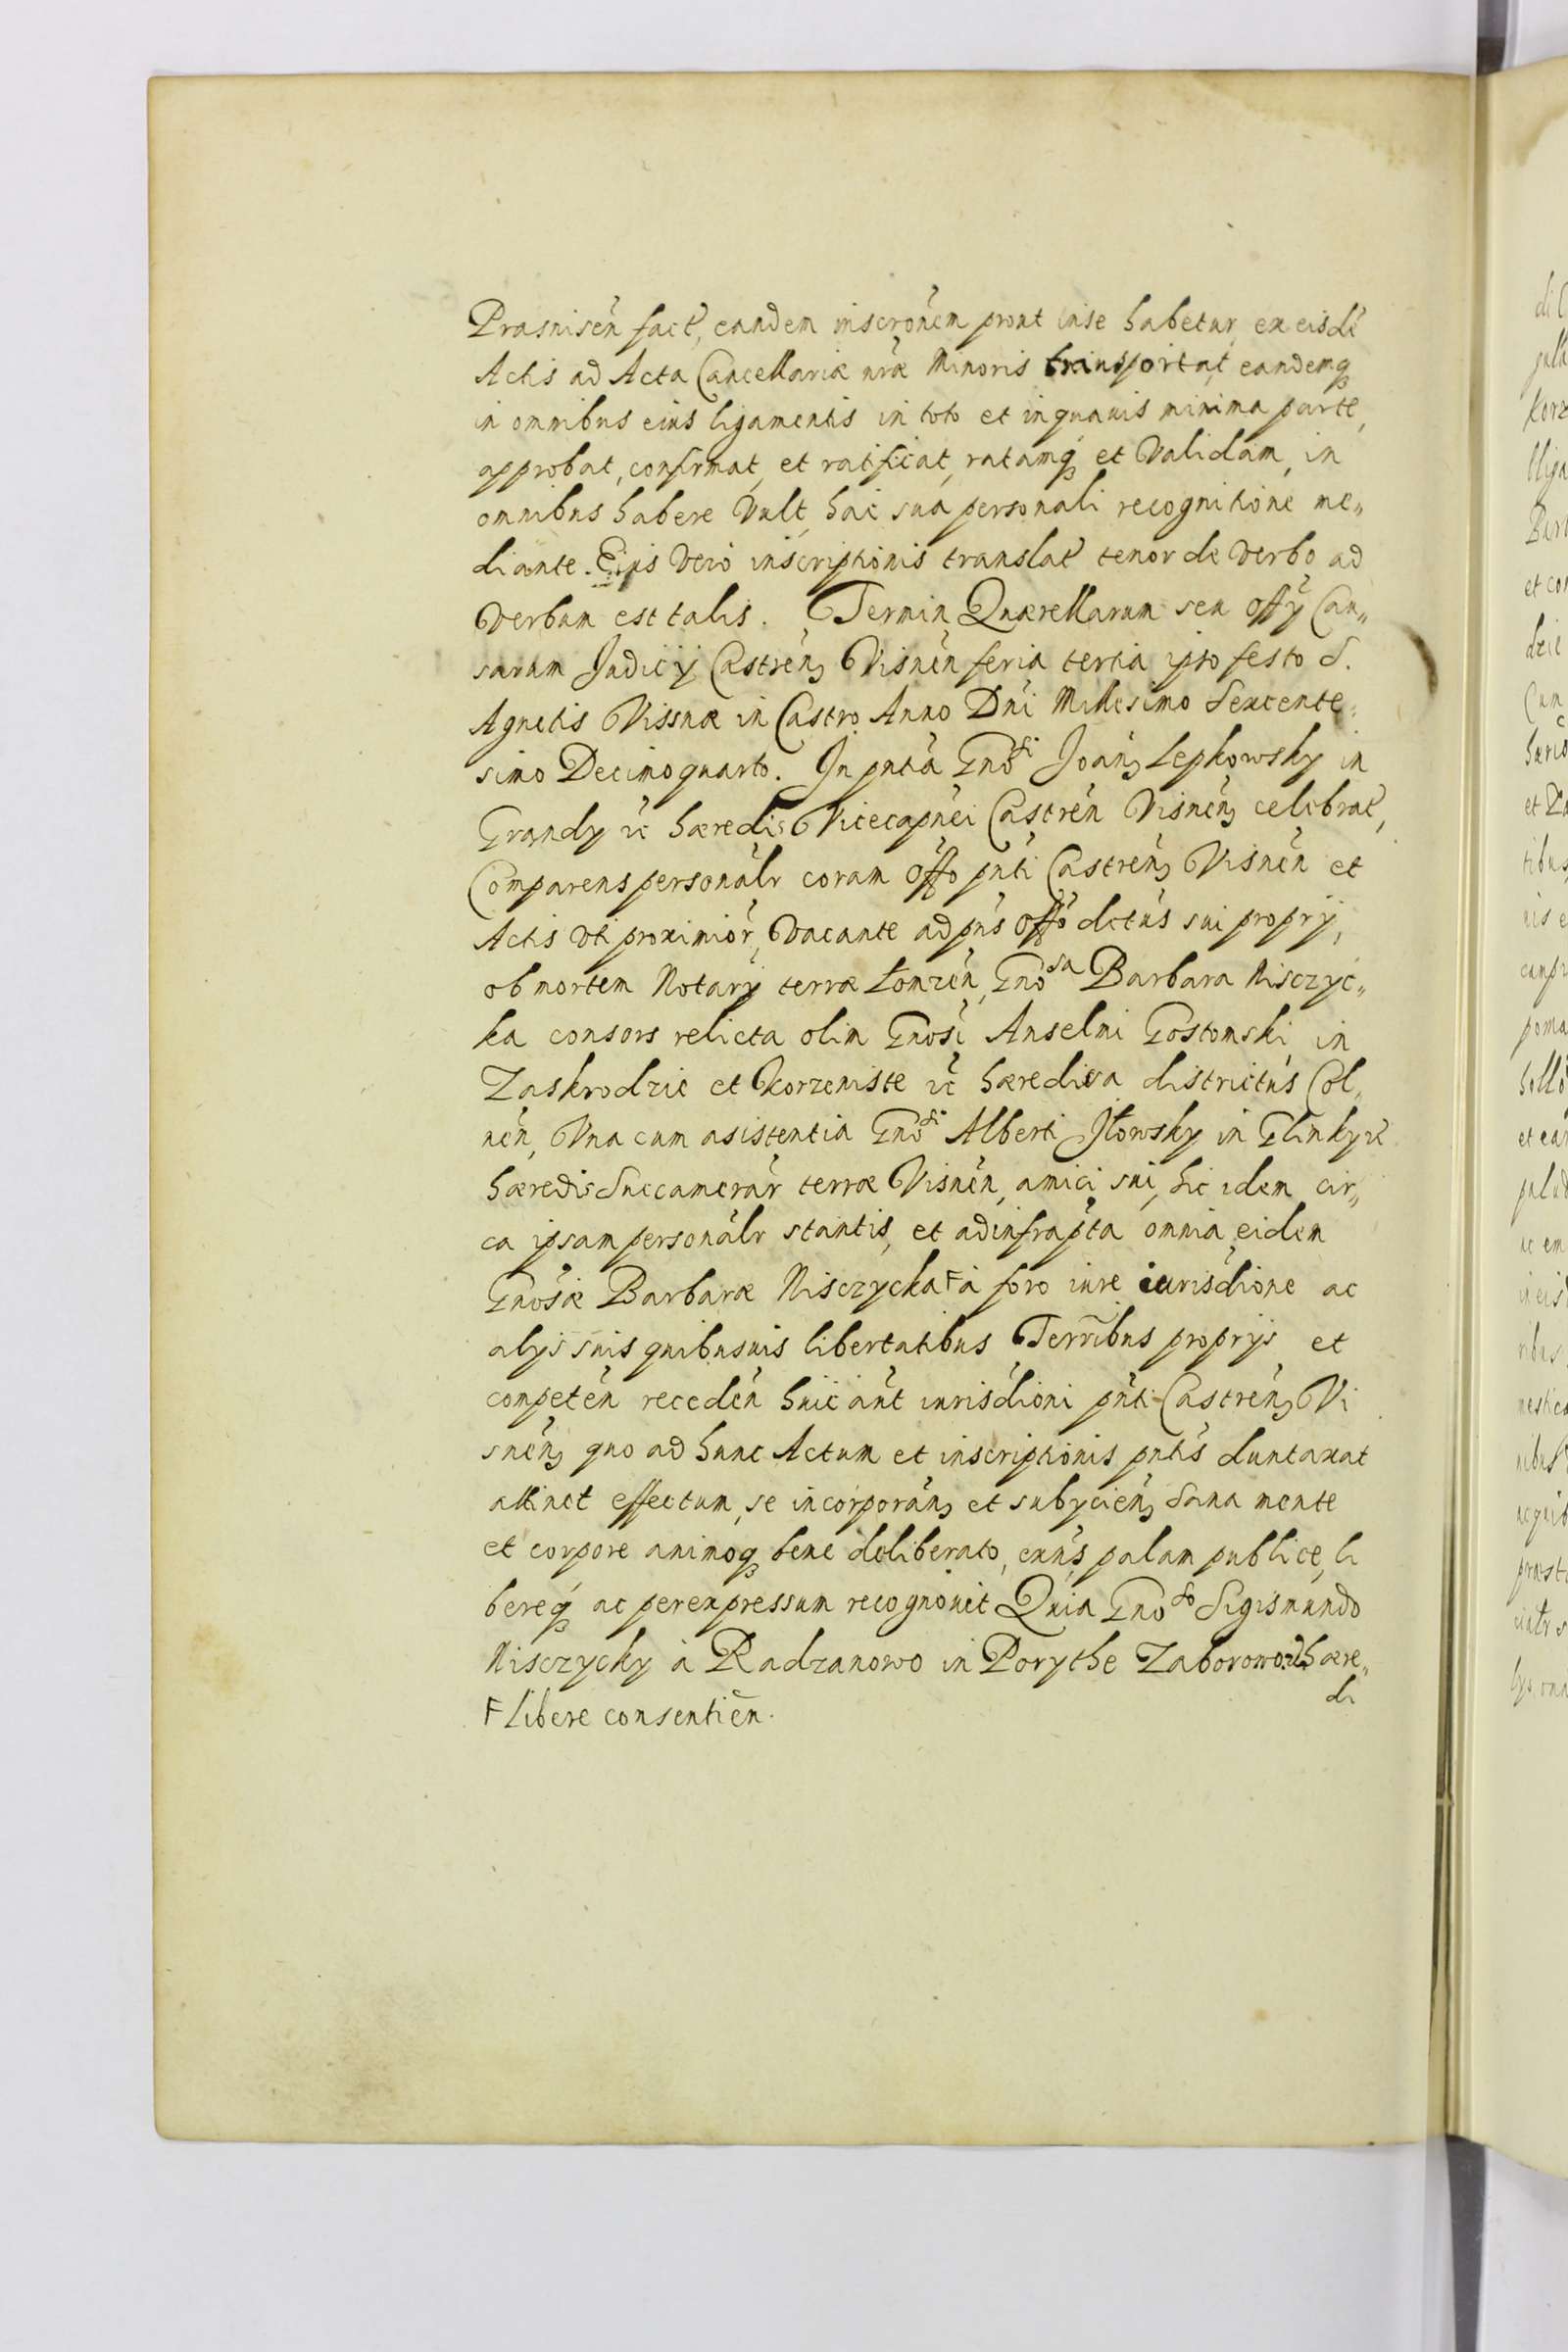 Prasnisen̄ fact, eandem inscron̄em prout inse habetur, ex eisdē
Actis ad Acta Cancellariæ nr̄æ Minoris transportat, eandemq́
in omnibus eius ligamentis in toto et in quauis minima parte,
approbat, confirmat, et ratificat, ratamq́ et Validam, in
omnibus habere Vult, hac sua personali recognitione me„
diante. Eius Vero inscriptionis translat tenor de Verbo ad
Verbum est talis. Termin Quærellarum seu Offy Cau„
sarum Judicij Castren̄ Visnen̄ feria tertia ipso festo S.
Agnetis Vissnæ in Castro Anno Dn̄i Millesimo Sexcente„
simo Decimoquarto. In pn̄tia Gn̄osi Joan̄ Lepkowsky in
Grandy zc hæredis Vicecapn̄ei Castren̄ Visnen̄ celebrat,
Comparens personalr̄ coram Offo pn̄ti Castren̄ Visnen̄ et
Actis Vti proximior̄, Vacante ad pn̄s Offo dictus sui proprij,
ob mortem Notarij terræ Łomzen̄, Gn̄osa Barbara Nisczyc„
ka consors relicta olim Gn̄osi Anselmi Gostomski in
Zaskrodzie et Korzeniste zc hærediva districtus Col„
nen̄, Vna cum asistentia Gn̄osi Alberti Jłowsky in Glinky zc
hæredis Succamerar̄ terræ Visnen̄, amici sui, hic idem cir„
ca ipsam personalr̄ stantis, et ad infrapt̄a omnia eidem
Gn̄osæ Barbaræ Nisczycka Ϝ à foro iure iurisdione ac
alys suis quibusuis libertatibus Terrībus proprijs et
competen̄ receden̄ huic an̄t iurisdioni pn̄ti Castren̄ Vi
snen̄ quo ad hunc Actum et inscriptionis pn̄tis duntaxat
attinet effectum, se incorporan̄ et subycien̄ Sana mente
et corpore animoq́ bene deliberato, exn̄s, palam publice, li
bereq́ ac per expressum recognouit Quia Gn̄oso Sigismundo
Nisczycky à Radzanowo in Porythe Zaborowo zc hære„
di
Ϝ libere consentien̄.